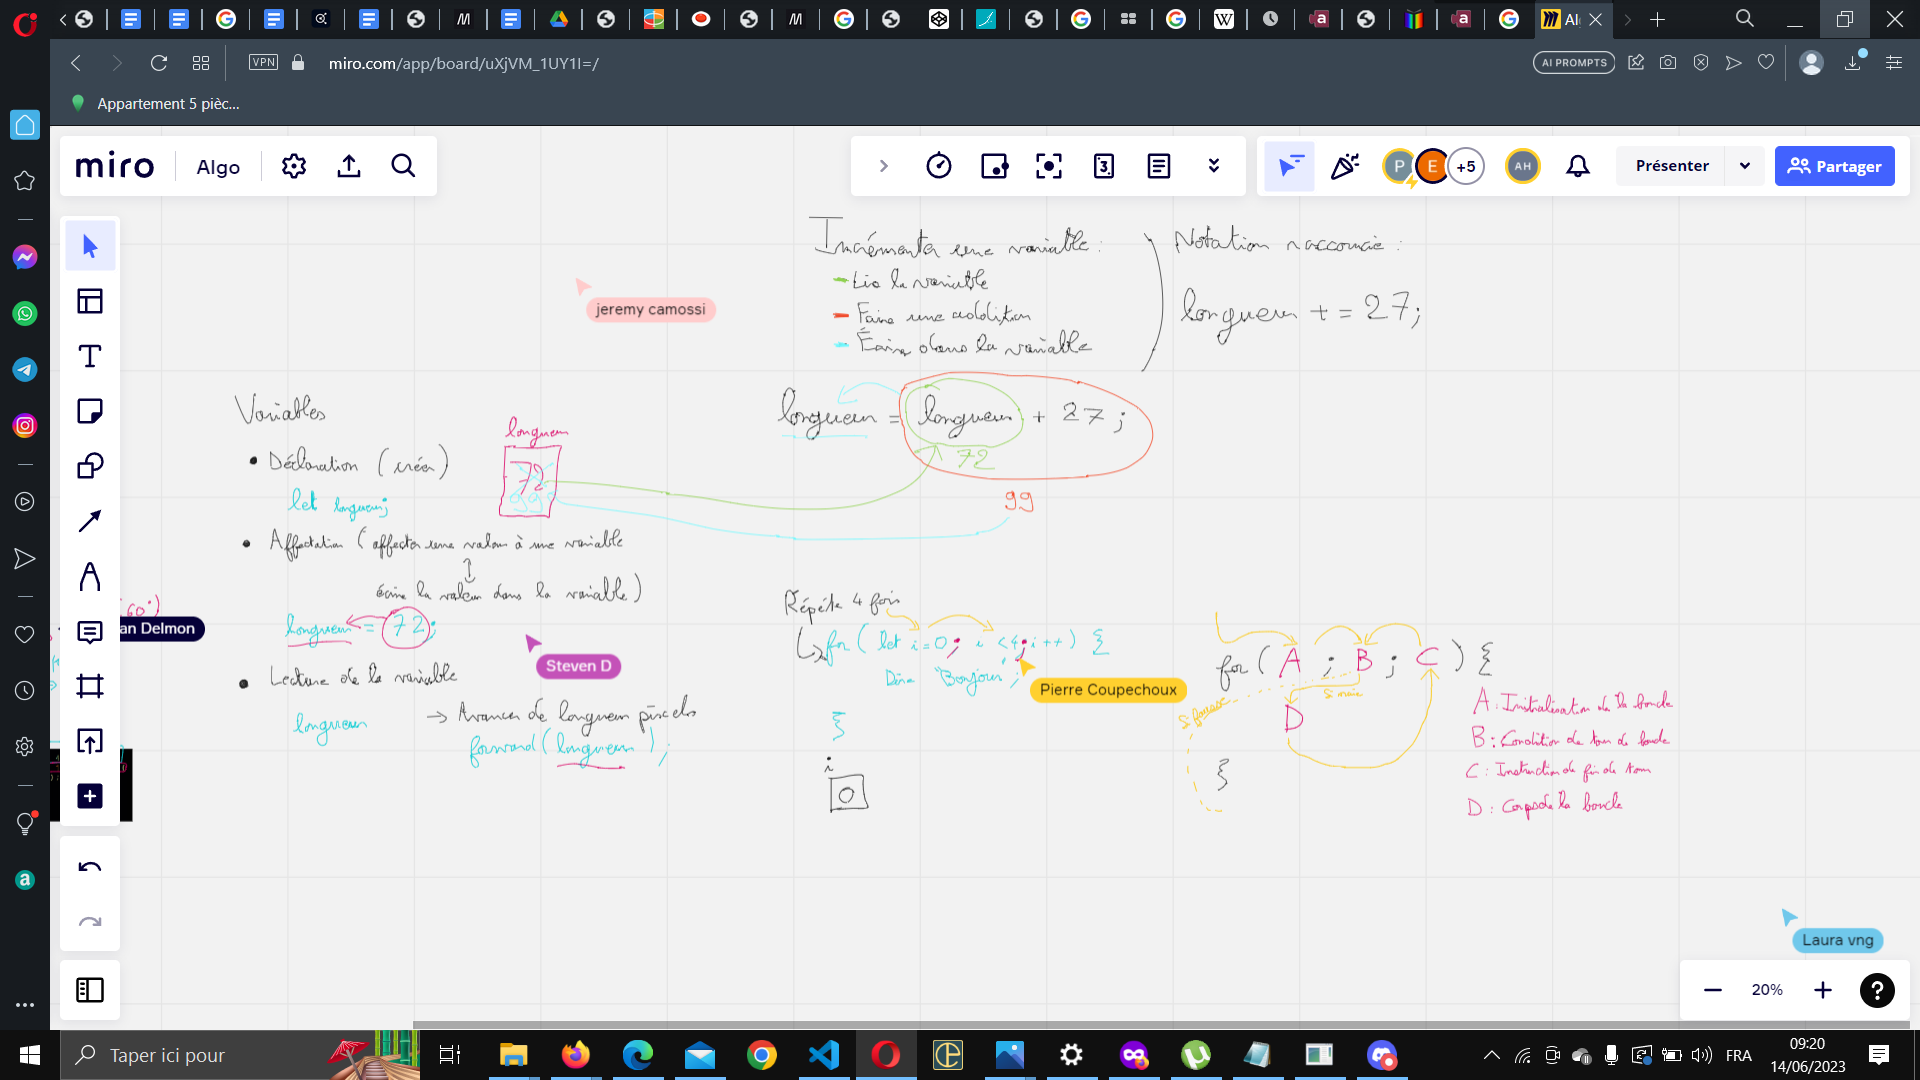 Al
VPN
miro.com/app/board/uXjVM_1UY1I=/
AI PROMPTS
Appartement 5 pièc...
miro
Algo
3
P
E
+5
AH
Présenter
Partager
Incrémenter une variable :
Lis la variable
Faire une addition
Écrire dans la variable
Notation raccourcie :
longueur += 27;
jeremy camossi
longueur = longueur + 27;
72
99
Variables
longueur
72
99
Déclaration (créer)
let longueur;
Affectation (affecter une valeur à une variable
écrire la valeur dans la variable)
60°)
an Delmon
longueur = 72;
Steven D
Lecture de la variable
longueur
→ Avancer de longueur pixels
forward(longueur);
Répéte 4 fois
for (let i=0; i<4; i++) {
Dire "Bonjour";
Pierre Coupechoux
}
i
0
for ( A ; B ; C ) {
si vraie
si fausse
D
}
A : Initialisation de la boucle
B : Condition de tour de boucle
C : Instruction de fin de tour
D : Corps de la boucle
Laura vng
20%
Taper ici pour
FRA
09:20
14/06/2023